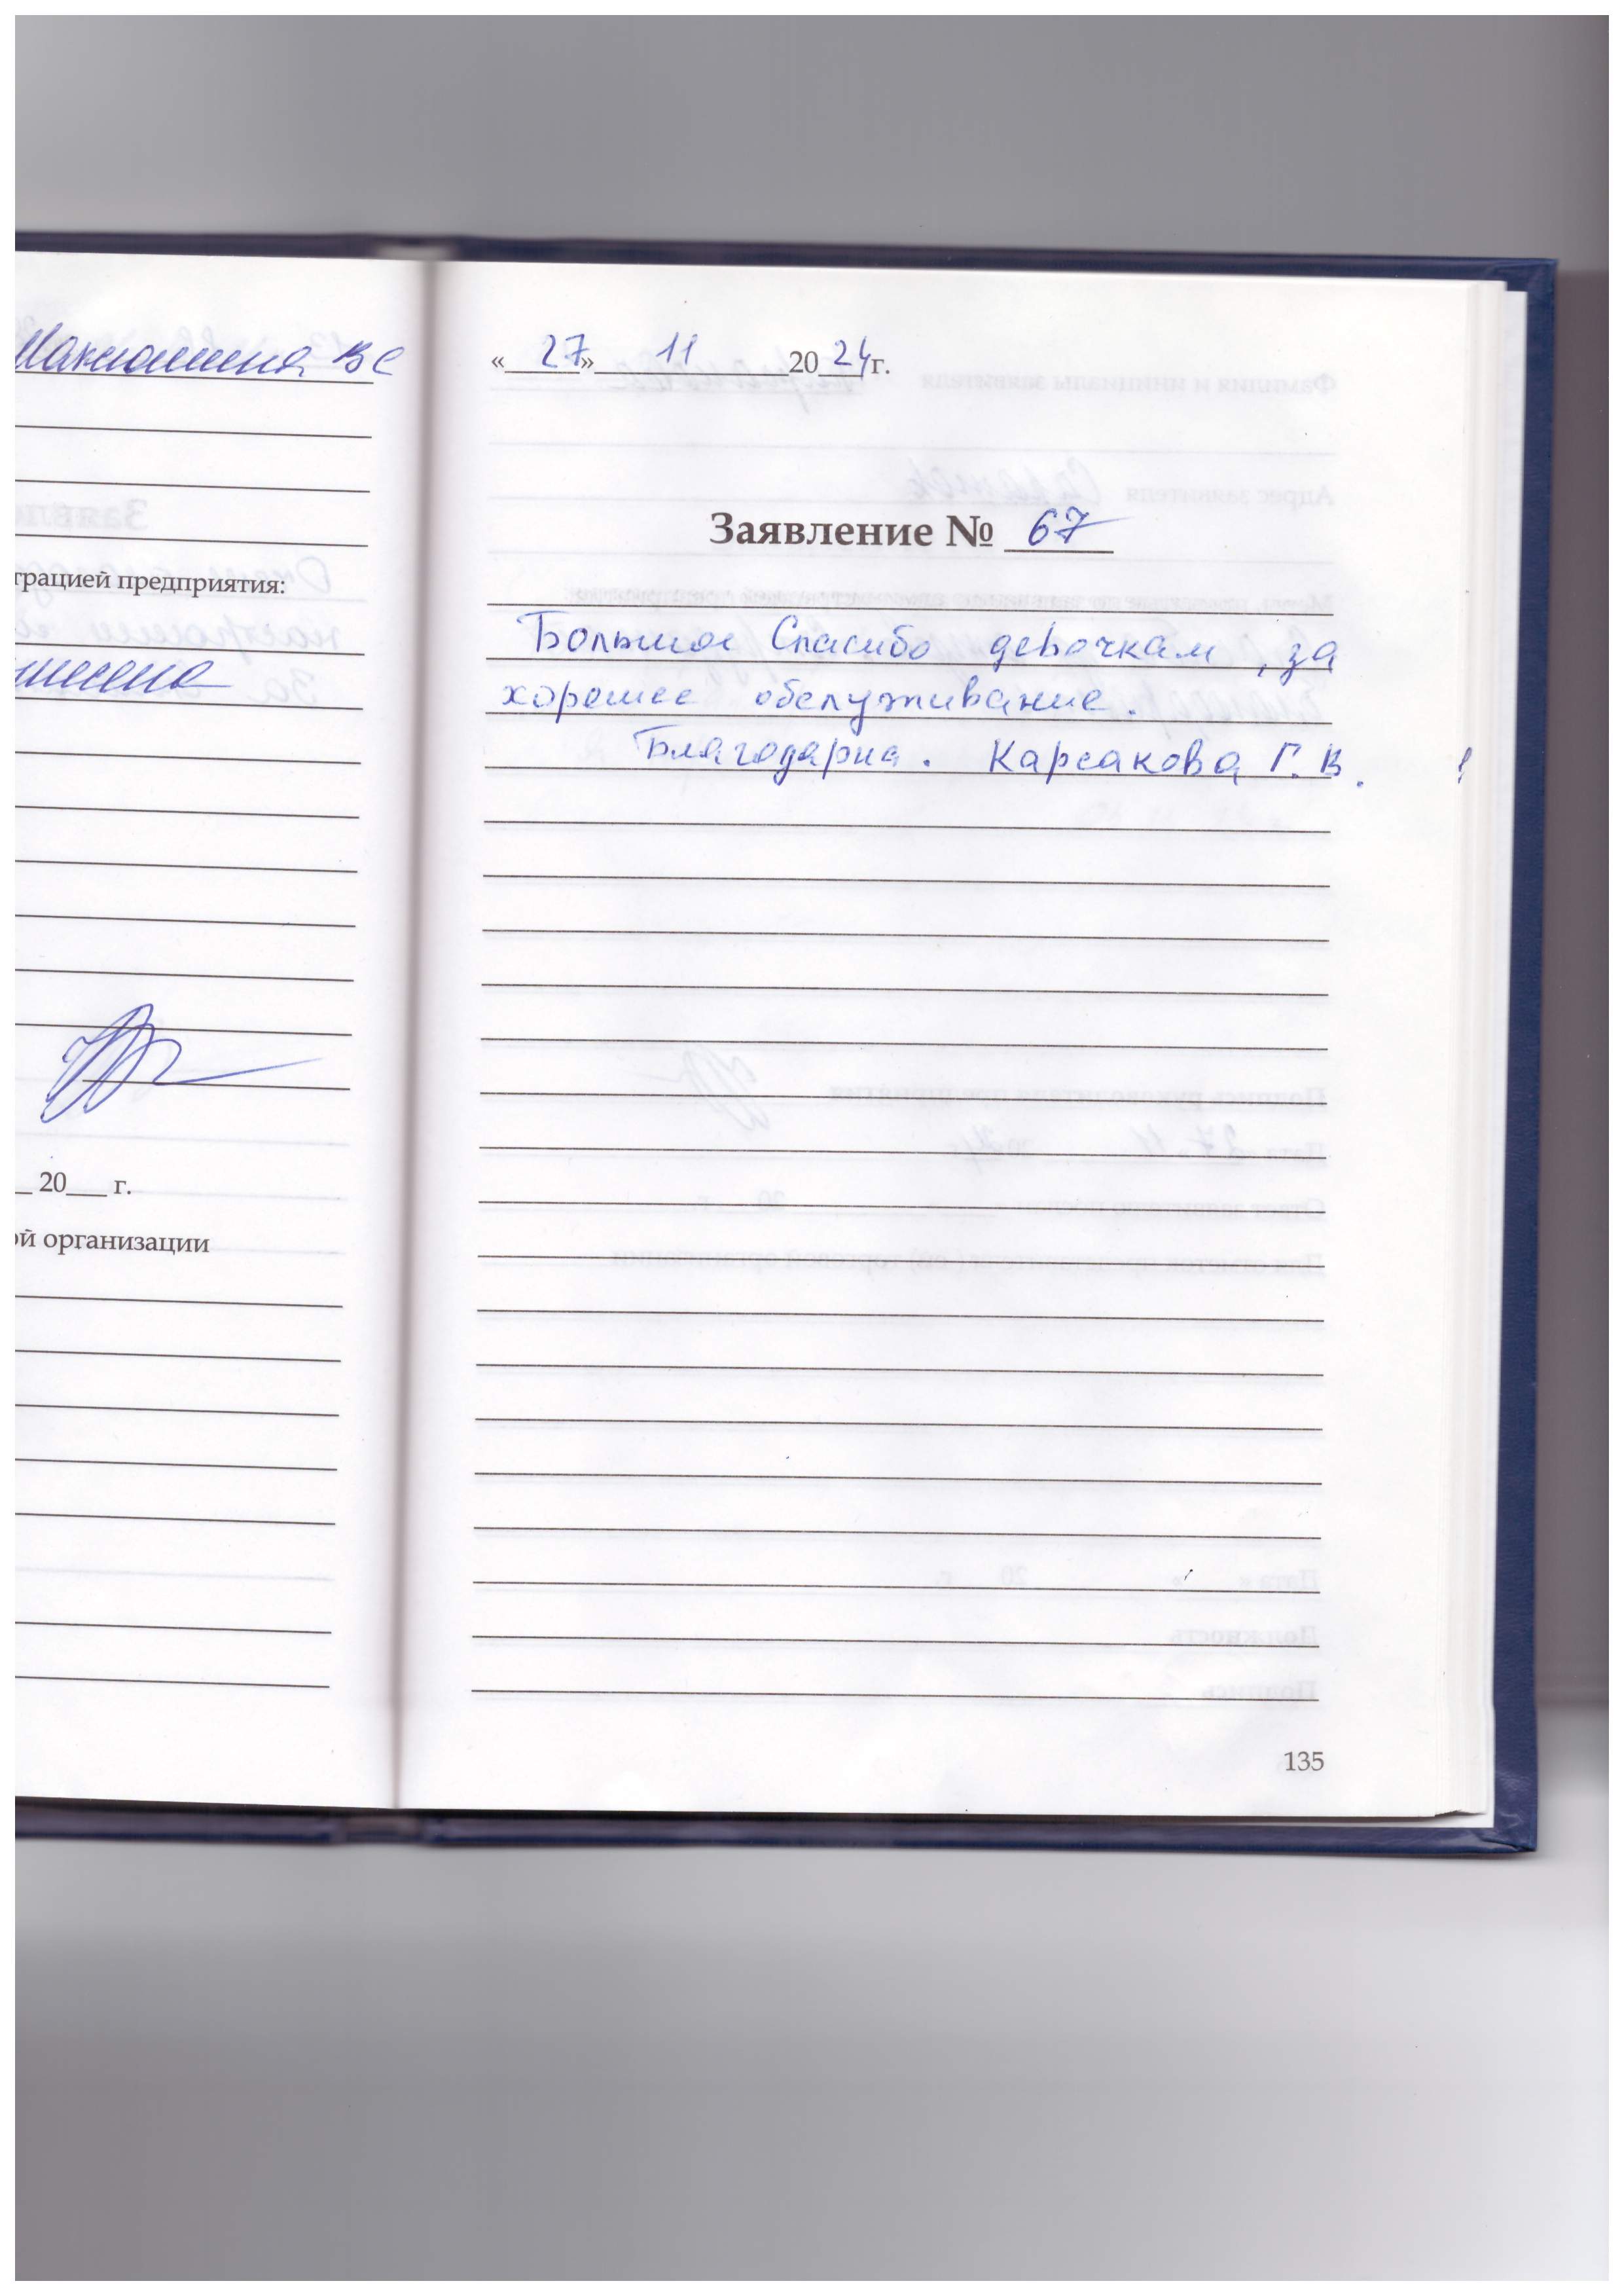 ВС
грацией предприятия:
20___ г.
ой организации
«27» 11 2024 г.
Заявление № 67
Большое Спасибо девочкам, за
хорошее обслуживание.
Благодарна. Карсакова Г. В.
135